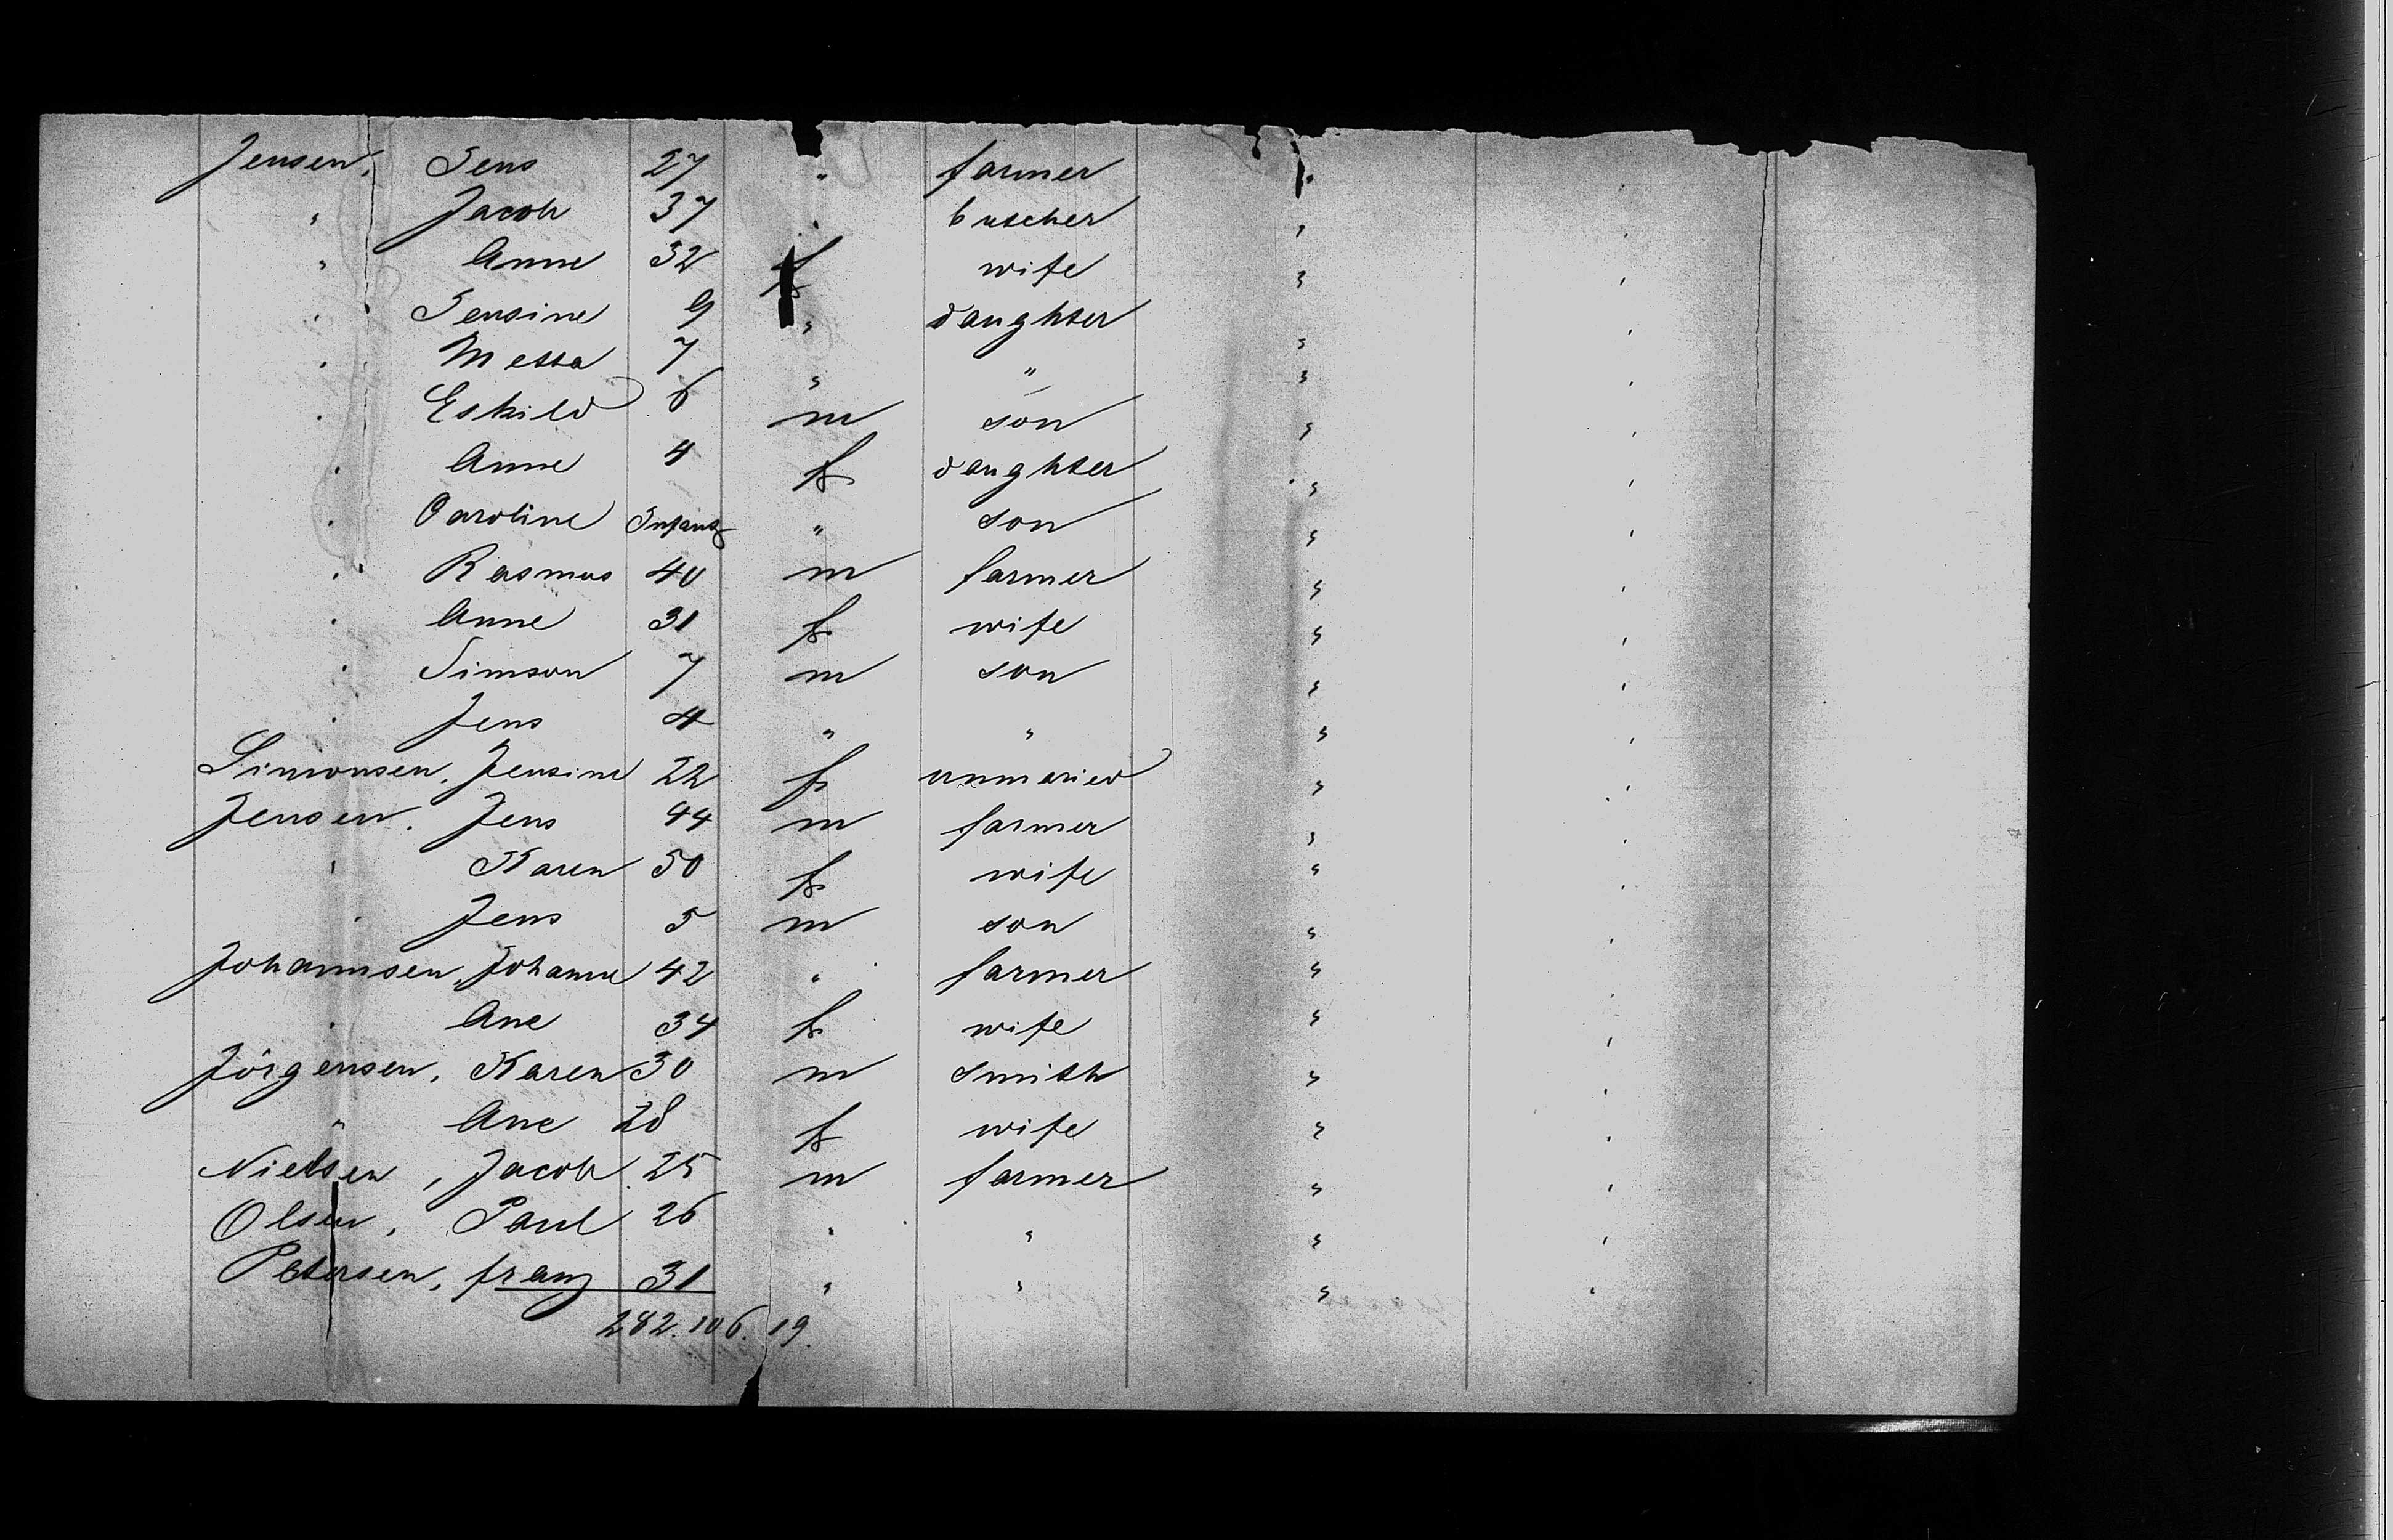 Jensen, Jens 27 " farmer "
" Jacob 37 " buscher "
" Anne 32 f wife "
" Jensine 9 " daughter "
" Metta 7 " " "
" Eskild 6 m son "
" Anne 4 f daughter "
" Caroline Infant " son "
" Rasmus 40 m farmer "
" Anne 31 f wife "
" Simson 7 m son "
" Jens 4 " " "
Simonsen, Jensine 22 f unmaried "
Jensen, Jens 44 m farmer "
" Karen 50 f wife "
" Jens 5 m son "
Johannsen, Johanne 42 " farmer "
" Ane 34 f wife "
Jörgensen, Karen 30 m smith "
" Ane 28 f wife "
Nielsen, Jacob 25 m farmer "
Olsen, Paul 26 " " "
Petersen, franz 31 " " "
282. 106. 19.